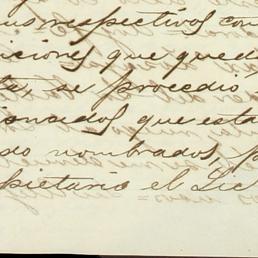 sus respectivos con
iciones que qued
ta, se procedió
ionados que esta
do nombrados, p
opietario el Lic